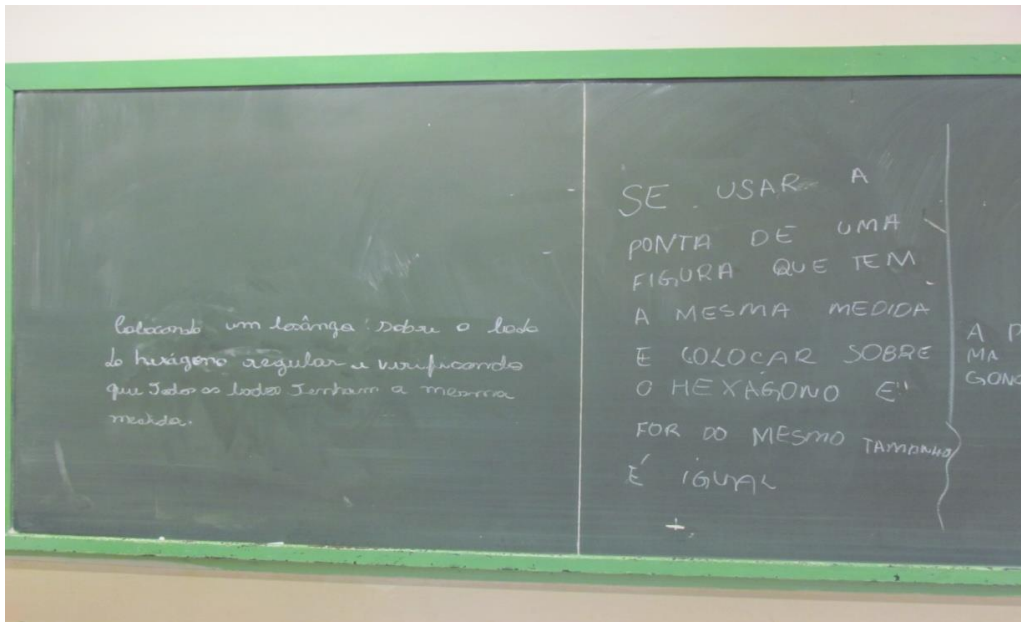 Colocando um losânga sobre o lado
do hexágono regular e verificando
que todos os lados tenham a mesma
medida.
SE USAR A
PONTA DE UMA
FIGURA QUE TEM
A MESMA MEDIDA
E COLOCAR SOBRE
O HEXÁGONO E"
FOR DO MESMO TAMANHO
É IGUAL
A P
MA
GONO